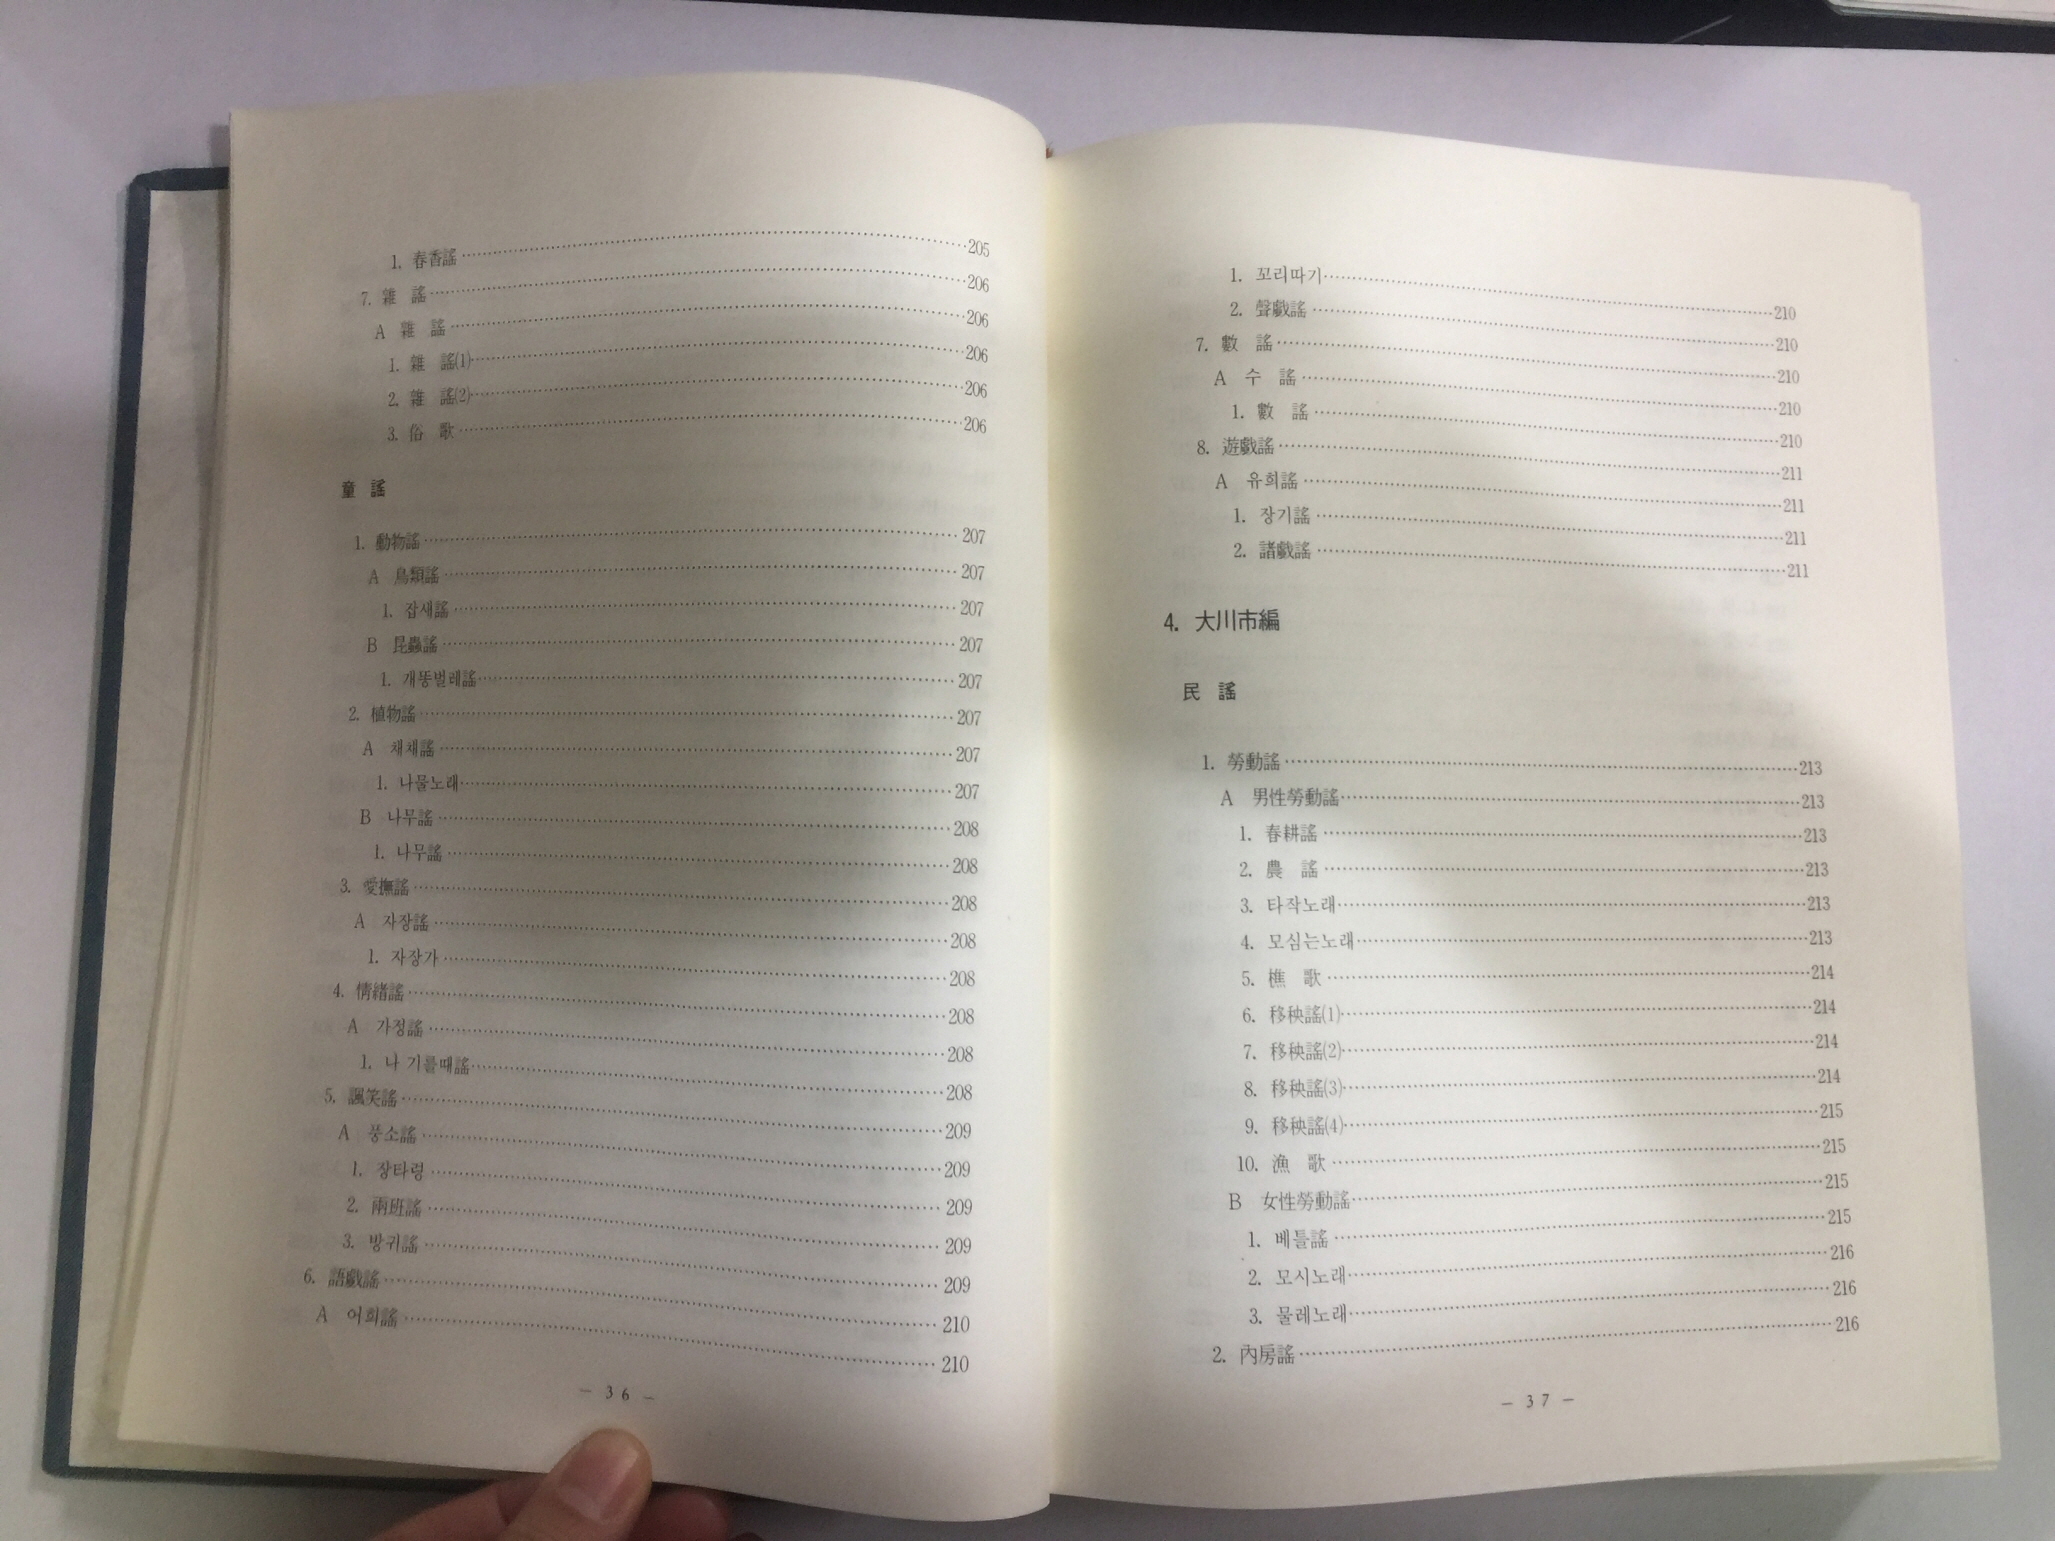 1. 春香謠 205
7. 雜 謠 206
A 雜 謠 206
1. 雜 謠(1) 206
2. 雜 謠(2) 206
3. 俗 歌 206
童 謠
1. 動物謠 207
A 鳥類謠 207
1. 잡새謠 207
B 昆蟲謠 207
1. 개똥벌레謠 207
2. 植物謠 207
A 채채謠 207
1. 나물노래 207
B 나무謠 208
1. 나무謠 208
3. 愛撫謠 208
A 자장謠 208
1. 자장가 208
4. 情緖謠 208
A 가정謠 208
1. 나 기를때謠 208
5. 諷笑謠 209
A 풍소謠 209
1. 장타령 209
2. 兩班謠 209
3. 방귀謠 209
6. 語戱謠 210
A 어희謠 210
- 36 -
1. 꼬리따기 210
2. 聲戱謠 210
7. 數 謠 210
A 수 謠 210
1. 數 謠 210
8. 遊戱謠 211
A 유희謠 211
1. 장기謠 211
2. 諸戱謠 211
4. 大川市編
民 謠
1. 勞動謠 213
A 男性勞動謠 213
1. 春耕謠 213
2. 農 謠 213
3. 타작노래 213
4. 모심는노래 213
5. 樵 歌 214
6. 移秧謠(1) 214
7. 移秧謠(2) 214
8. 移秧謠(3) 214
9. 移秧謠(4) 215
10. 漁 歌 215
B 女性勞動謠 215
1. 베틀謠 215
2. 모시노래 216
3. 물레노래 216
2. 內房謠 216
- 37 -